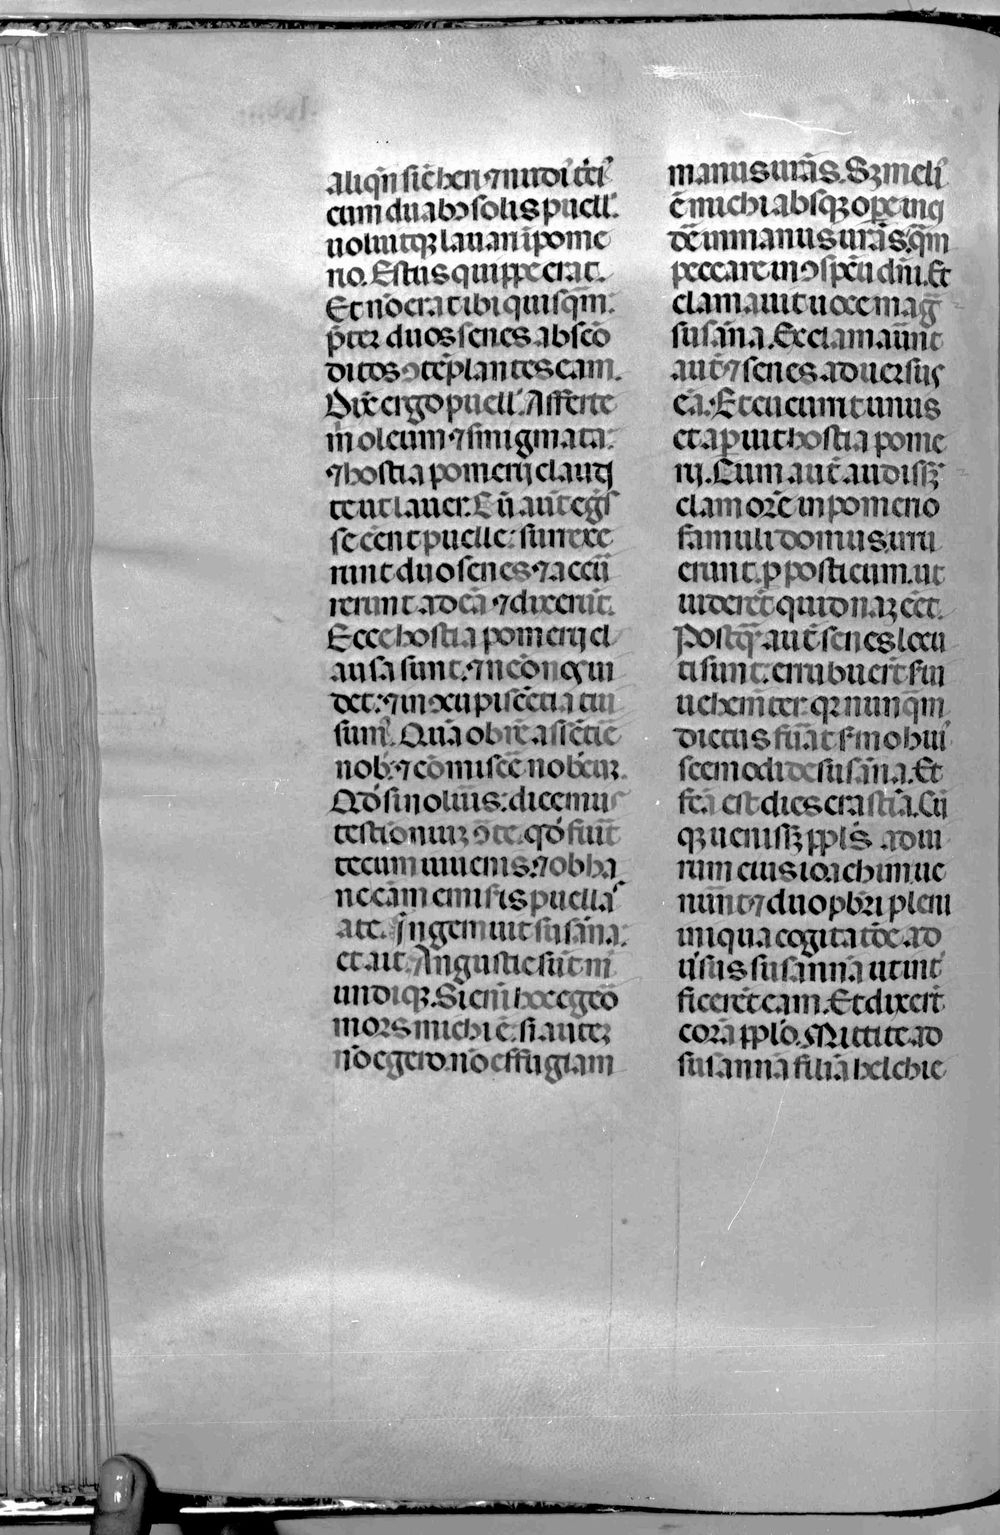 aliqn̄ sic̄ heri ⁊ nudi᷑ ťci᷑
cum duabꝫ solis puell᷑.
uoluitqꝫ lauari ī pome
rio. Estus quippe erat.
Et nō erat ibi quisqm̄.
p̄ter duos senes abscō
ditos ꝯtēplantes eam.
Dix̄ ergo puell᷑. Afferte
m̄ oleum ⁊ smigmata:
⁊ hostia pomerij claudi
te ut lauer. Cū aūt egr̄s
se cēnt puelle: surrexe
runt duo senes ⁊ accū
rerunt ad eā ⁊ dixerūt.
Ecce hostia pomerij cl
ausa sunt. ⁊ nēo nos ui
det: ⁊ in ꝯcupiscētia tui
sum᷒. Quā ob rē assētie
nob̄ ⁊ cōmiscē nobcuꝫ.
Qd̄ si nolūis: dicemus
testionuiꝫ ꝯ te. qd̄ fuīt
tecum iuuenis. ⁊ ob ha
nc cām emisis puellas
a te. Ingemuit susāna:
et ait. Angustie sūt m̄
undiqꝫ. Si em̄ hoc egeō
mors michi ē. si autez
nō egero. nō effugiam
manus urās. Sꝫ meli᷒
ē michi absqꝫ ope inci
dē in manus urās. qm̄
peccare in ꝯspcū dni. Et
clamauit uoce maḡ
susāna. Exclamaūnt
aūt ⁊ senes aduersus
eā. Et cucurrit unus
et apuit hostia pome
rij. Cum aūt audissꝫ
clamorē in pomerio
famuli domus irru
erunt p posticum. ut
uiderēt quidnaꝫ eēt.
Postqꝫ aūt senes locu
ti sunt. erubuert s̄ui
uehemīter. qꝛ nunqm̄
dictus fūat s̄mo hui᷒
scemodi de susāna. Et
fc̄ā est dies crastiā. Cū
qꝫ uenissꝫ pplꝰs ad ui
rum eius ioachim ue
nūnt ⁊ duo pbri pleni
iniqua cogitatōe ad
uīsus susannā ut int̄
ficerēt eam. Et dixert̄
corā pplo. Mittite ad
susannā filiā helchie